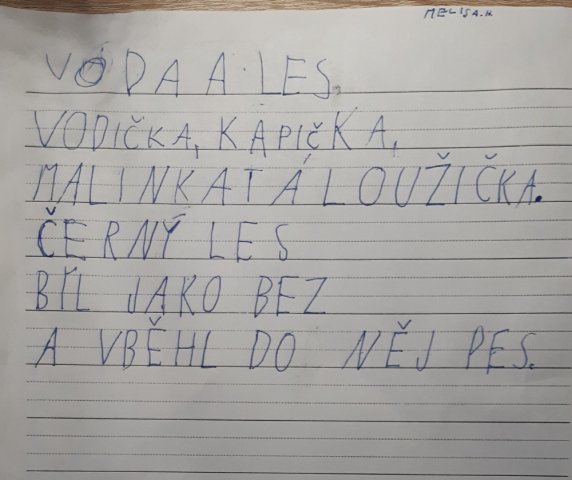 MELISA.H.
VODA A LES.
VODIČKA, KAPIČKA,
MALINKATÁ LOUŽIČKA.
ČERNÝ LES
BÍL JAKO BEZ
A VBĚHL DO NĚJ PES.